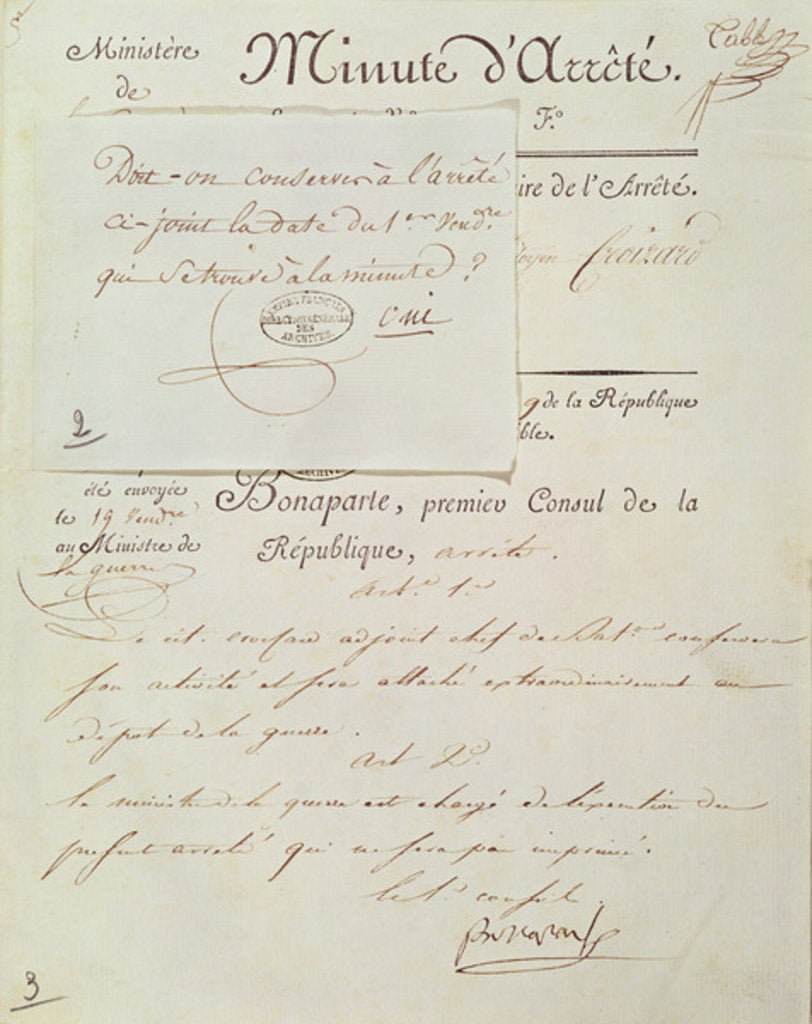 Ministère
de
Minute d'Arrêté.
F.º
Doit-on conserver à l'arrêté
ci-joint la date du 1.er Vend.re
qui se trouve à la minute ?
oui
EMPIRE FRANÇAIS
DIRECTION GÉNÉRALE
DES
ARCHIVES
2
ire de l'Arrêté.
oyen Croizard
9 de la République
ible.
été envoyée
le 19 Vend.re
au Ministre de
la guerre
Bonaparte, premier Consul de la
République, arrête.
art. 1.er
Le cit. adjoint chef de Bat.on conservera
son activité et sera attaché extraordinairement au
dépôt de la guerre.
art 2.
le ministre de la guerre est chargé de l'exécution du
présent arrêté qui ne sera pas imprimé.
le 1.er consul
Bonaparte
3